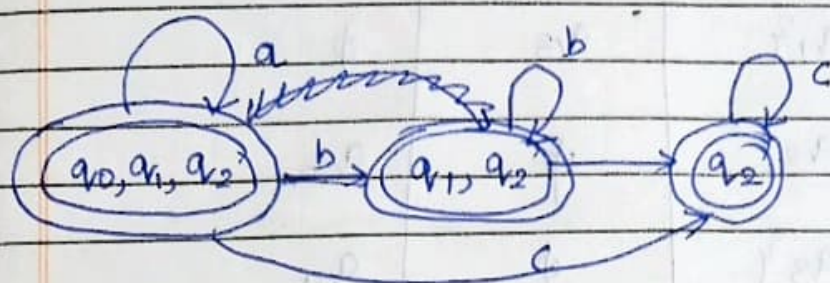 a b c
q0, q1, q2 b q1, q2 q2
c